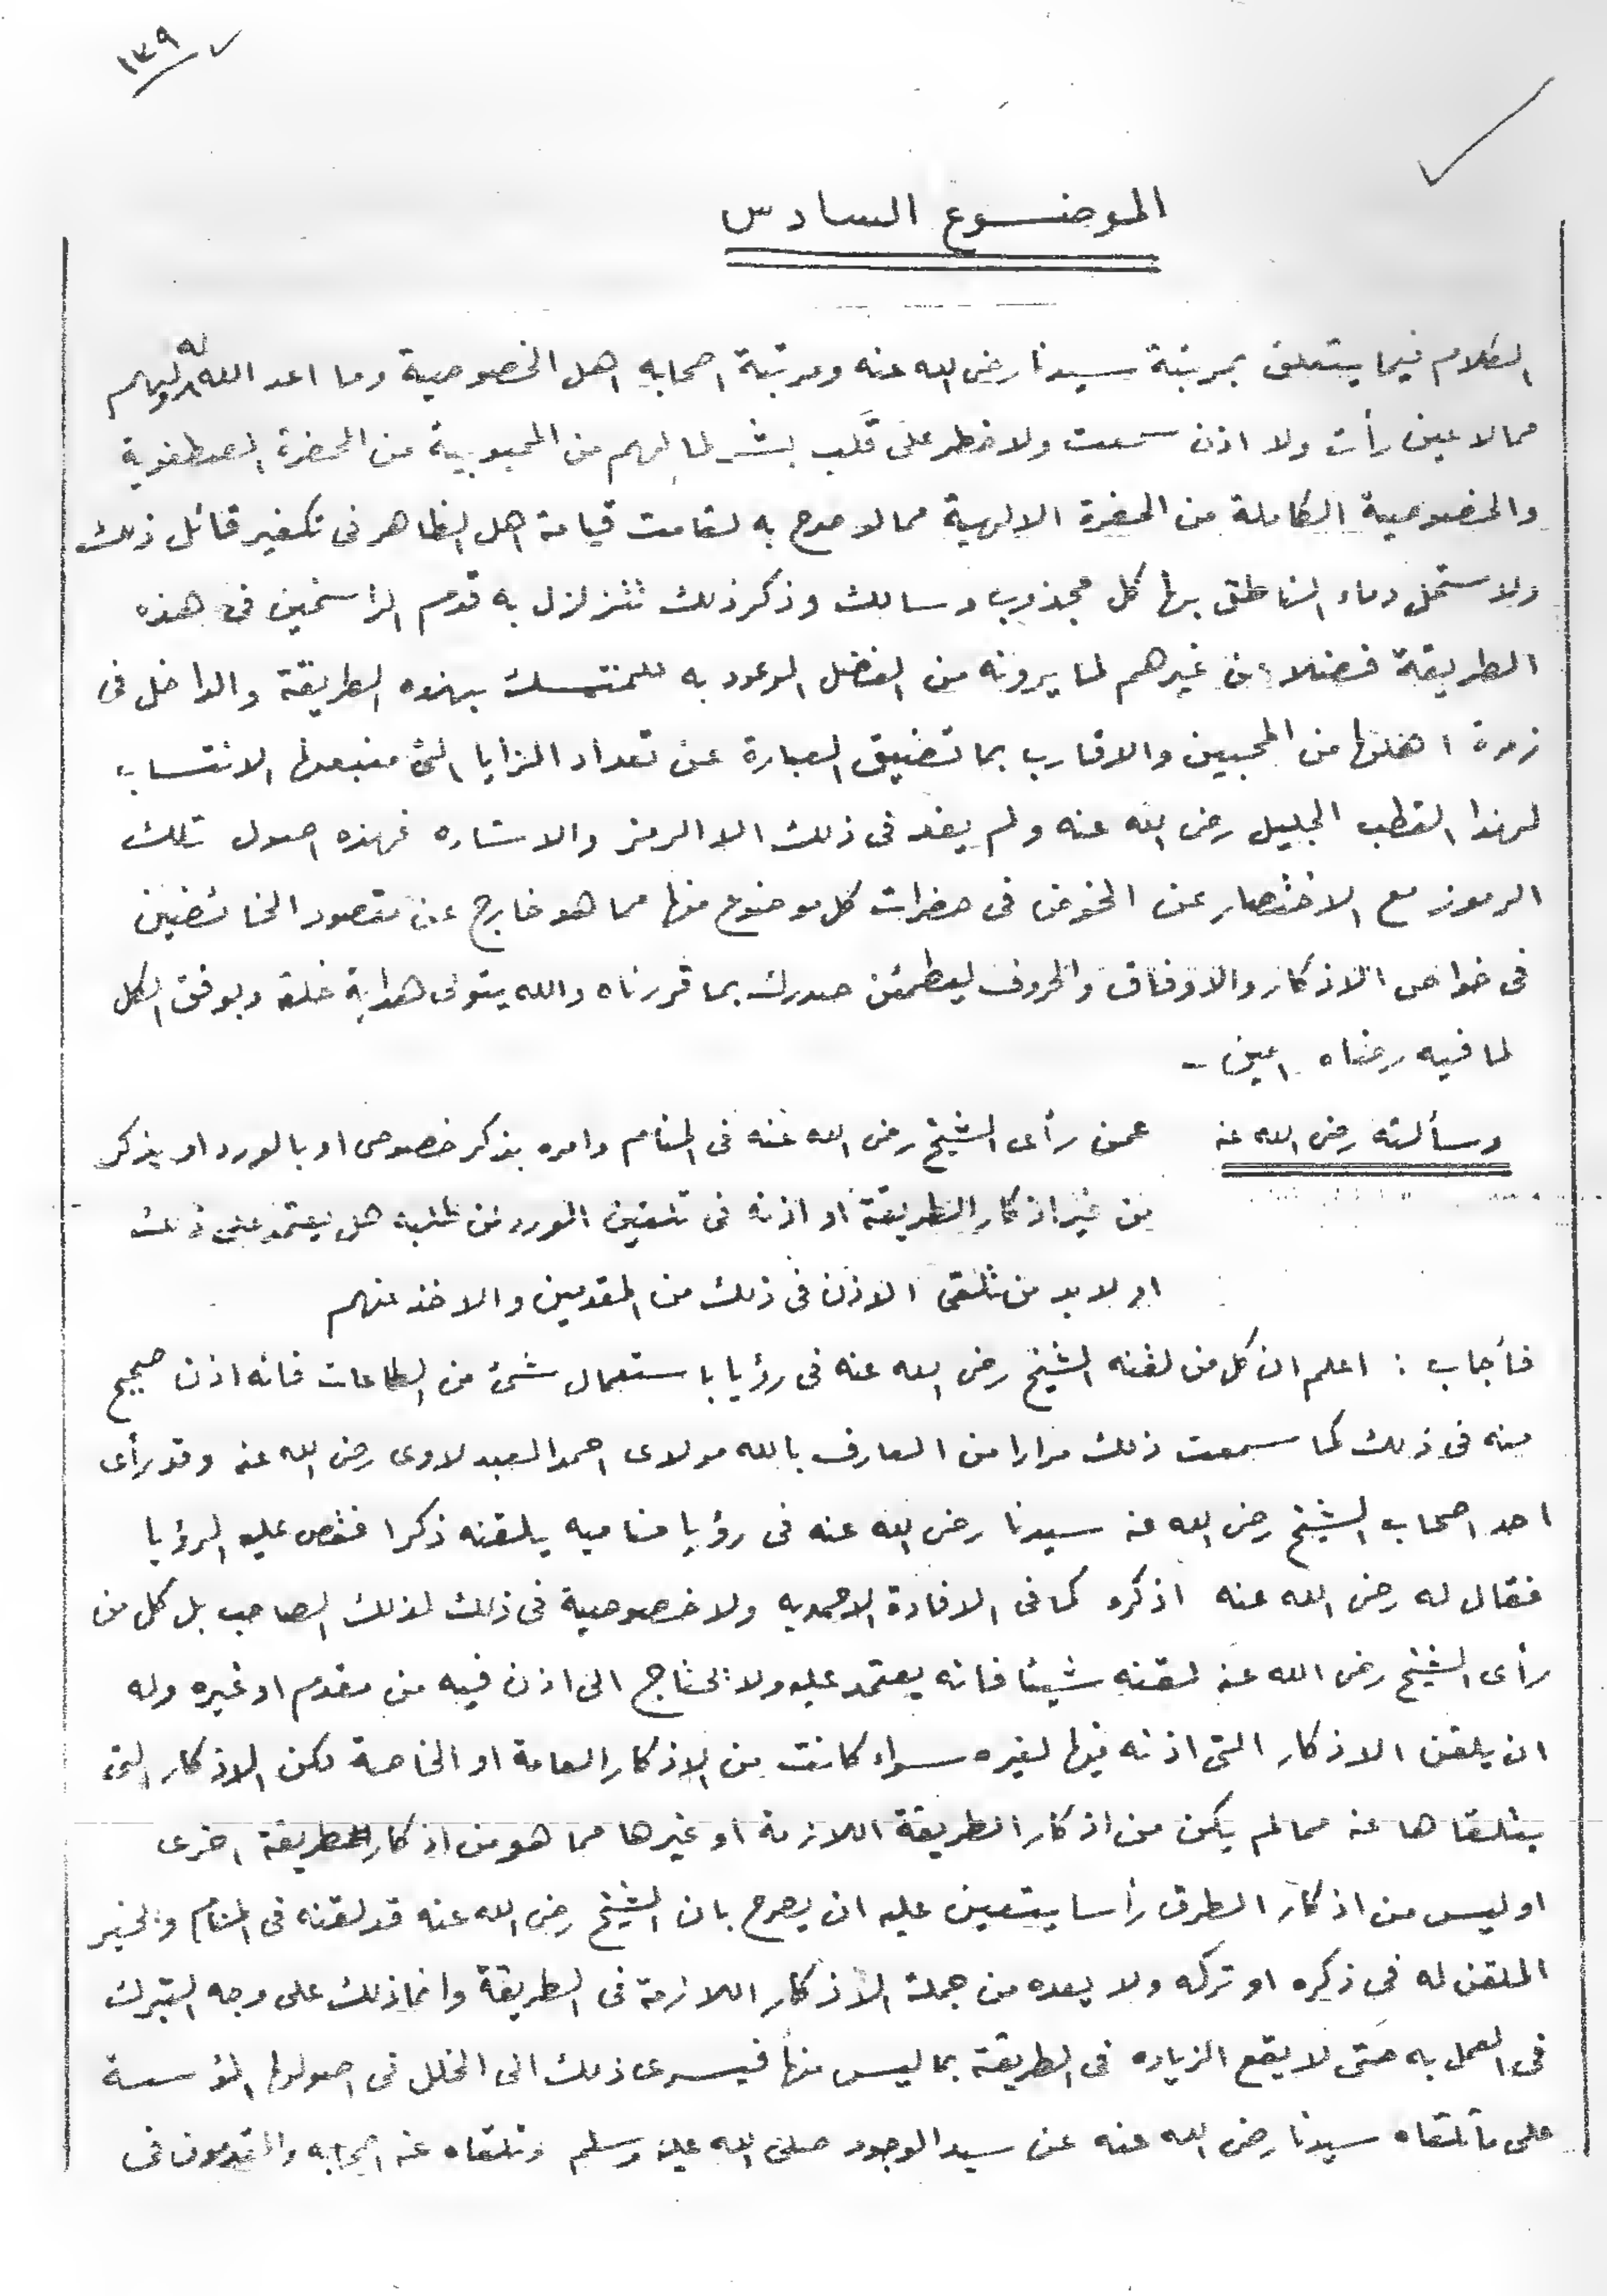 ١٣٩
الموضوع السادس
الكلام فيما يتعلق بمرتبة سيدنا رضى الله عنه ومرتبة اصحابه اهل الخصوصية وما اعد الله له ولهم
مما لا عين رأت ولا اذن سمعت ولا خطر على قلب بشر لما لهم من المحبوبية من الحضرة المصطفوية
والخصوصية الكاملة من الحضرة الالهية مما لو صرح به لقامت قيامة اهل الظاهر فى تكفير قائل ذلك
ولاستحل دماء الناطق بها كل مجذوب وسالك وذكر ذلك تتزلزل به قدم الراسخين فى هذه
الطريقة فضلا عن غيرهم لما يرونه من الفضل الموعود به للمتمسك بهذه الطريقة والداخل فى
زمرة اهلها من المحبين والاقارب بما تضيق العبارة عن تعداد المزايا التى منبعها الانتساب
لهذا القطب الجليل رضى الله عنه ولم يفد فى ذلك الا الرمز والاشاره فهذه اصول تلك
الرموز مع الاختصار عن الخوض فى حضرات كل موضوع منها مما هو خارج عن مقصود الخائضين
فى خواص الاذكار والاوفاق والحروف ليطمئن صدرك بما قررناه والله يتولى هداية خلقه ويوفق الكل
لما فيه رضاه امين -
وسألته رضى الله عنه عمن رأى الشيخ رضى الله عنه فى المنام وامره بذكر خصوصى او بالورد او بذكر
من غير اذكار الطريقة او اذنه فى تلقين الورد لمن طلبه هل يعتمد على ذلك
او لا بد من تلقى الاذن فى ذلك من المقدمين والاخذ عنهم
فأجاب : اعلم ان كل من لقنه الشيخ رضى الله عنه فى رؤيا باستعمال شئ من الطاعات فانه اذن صحيح
منه فى ذلك كما سمعت ذلك مرارا من العارف بالله مولاى احمد العبدلاوى رضى الله عنه وقد رأى
احد اصحاب الشيخ رضى الله عنه سيدنا رضى الله عنه فى رؤيا مناميه يلقنه ذكرا فقص عليه الرؤيا
فقال له رضى الله عنه اذكره كما فى الافادة الاحمديه ولا خصوصية فى ذلك لذلك الصاحب بل كل من
رأى الشيخ رضى الله عنه لقنه شيئا فانه يعتمد عليه ولا يحتاج الى اذن فيه من مقدم او غيره وله
ان يلقن الاذكار التى اذنه فيها لغيره سواء كانت من الاذكار العامة او الخاصة لكن الاذكار التى
يتلقاها عنه مما لم يكن من اذكار الطريقة اللازمة او غيرها مما هو من اذكار الطريقة اخرى
او ليس من اذكار الطرق رأسا يتعين عليه ان يصرح بان الشيخ رضى الله عنه قد لقنه فى المنام ويخير
الملقن له فى ذكره او تركه ولا يعده من جملة الاذكار اللازمة فى الطريقة وانما ذلك على وجه التبرك
فى العمل به حتى لا يقع الزياده فى الطريقة بما ليس منها فيسرى ذلك الى الخلل فى اصولها المؤسسة
على ما تلقاه سيدنا رضى الله عنه عن سيد الوجود صلى الله عليه وسلم وتلقاه عنه اصحابه والمقدمون فى